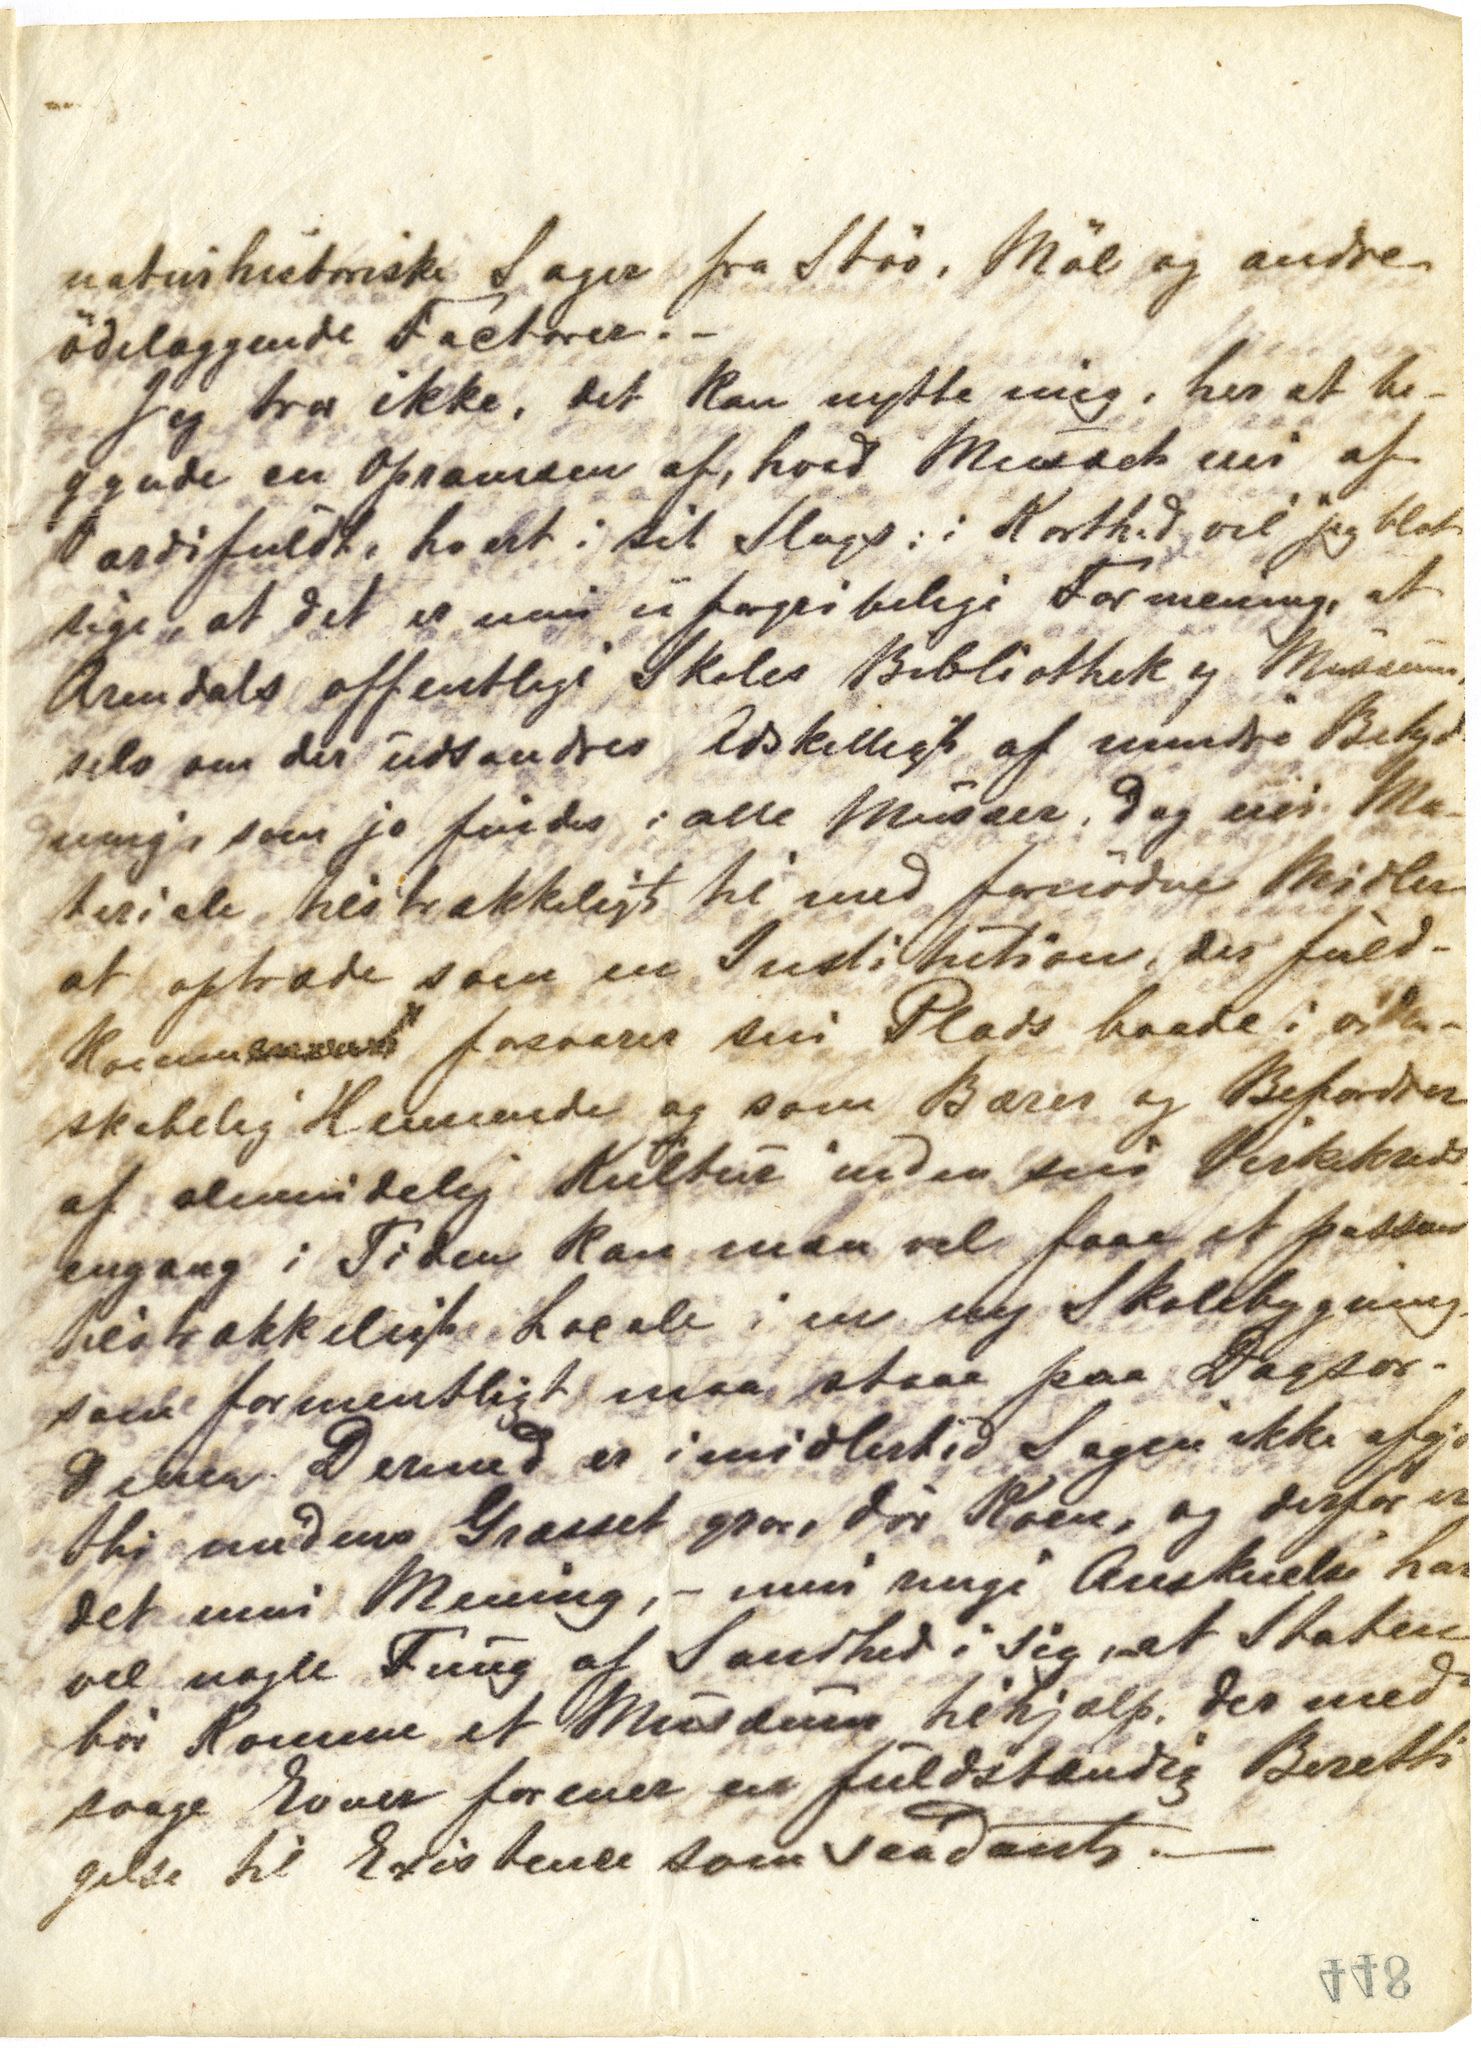 naturhistoriske Sager fra Stöv, Möl og andre
ödelæggende Factorer. –
Jeg tror ikke, det kan nytte mig, her at be-
gynde en Opramsen af, hvad Museet eier af
Værdifuldt, hvert i sit Slags; i Korthed vil jeg blot
sige, at det er min uforgribelige Formening, at
Arendals offentlige Skoles Bibliothek og Museum,
selv om der udsondres Adskilligt af mindre Betyd-
ning, som jo findes i alle Museer, dog eier Ma-
teriale tilstrækkeligt til med fornödne Midler
at optræde som en Institution, der fuld-
komment forsvarer sin Plads baade i viden-
skabelig Henseende og som Bærer og Befordrer
af almindelig Kultur inden sin Virkekreds
engang i Tiden kan man vel faae et passende
tilstrækkeligt Locale i en ny Skolebygning
som formentligt maa staae paa Dagsor-
denen. Dermed er imidlertid Sagen ikke afgjo
thi medens Græsset gror, dör Koen, og derfor er
det min Mening, – min ringe Anskuelse har
vel nogle Fnug af Sandhed i sig, at Staten
bör komme et Museum tilhjælp, der med
svage Evner forener en fuldstændig Beretti
gelse til Existence som saadant. —
448